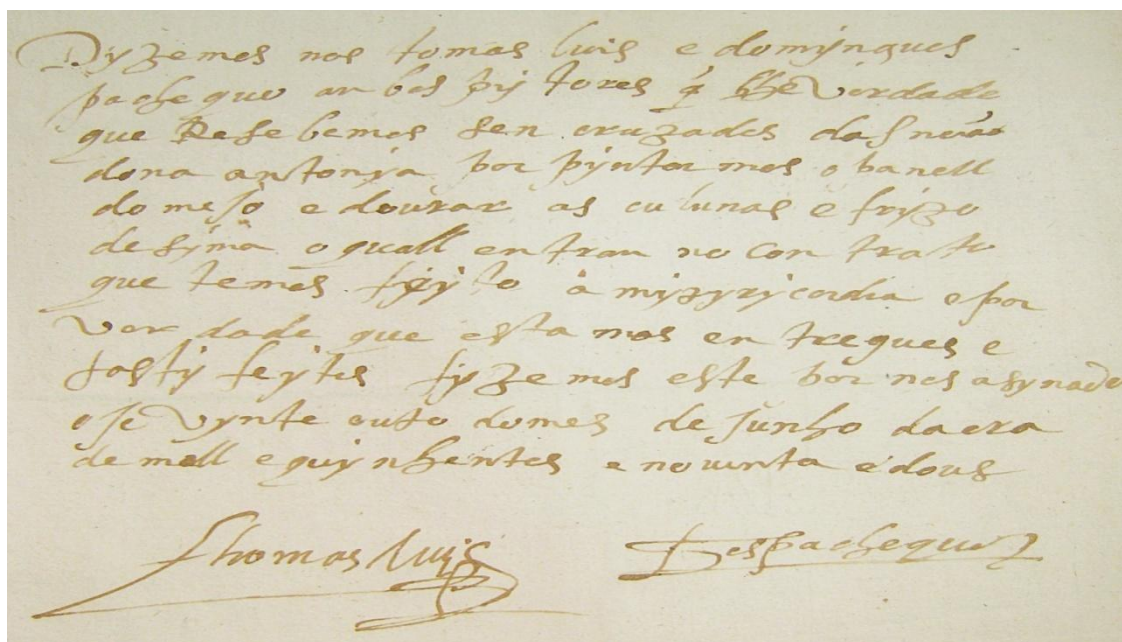 Dyzemos nos tomas luis e domyngues
pacheguo anbos pijtores q̃ hhe verdade
que Resebemos sen cruzados da snõra
dona antonja por pyntarmos o panell
do meso e dourar as culunas e fryzo
de syma o quall entran no contrato
que temos feyto á myzyrjcordia e por
verdade que estamos entregues e
sastyfeytos fyzemos este por nos asynado
ose vynte outo do mes de Junho da era
de mell e quynhentos e novinta e dous
thomas luis
Dos pacheguo